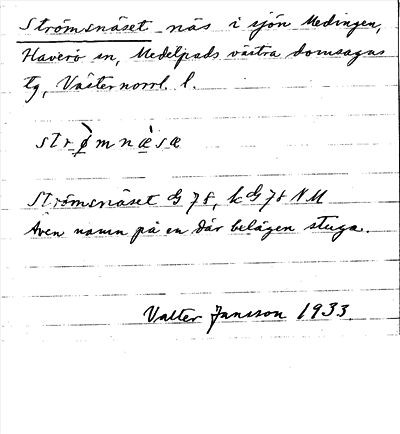 Strömsnäset näs i sjön Medingen,
Haverö sn, Medelpads västra domsagas
tg, Västernorrl. l.
strø̀mnæ̀sæ
Strömsnäset G 78, k G 78 N M
Även namn på en där belägen stuga.
Valter Jansson 1933.